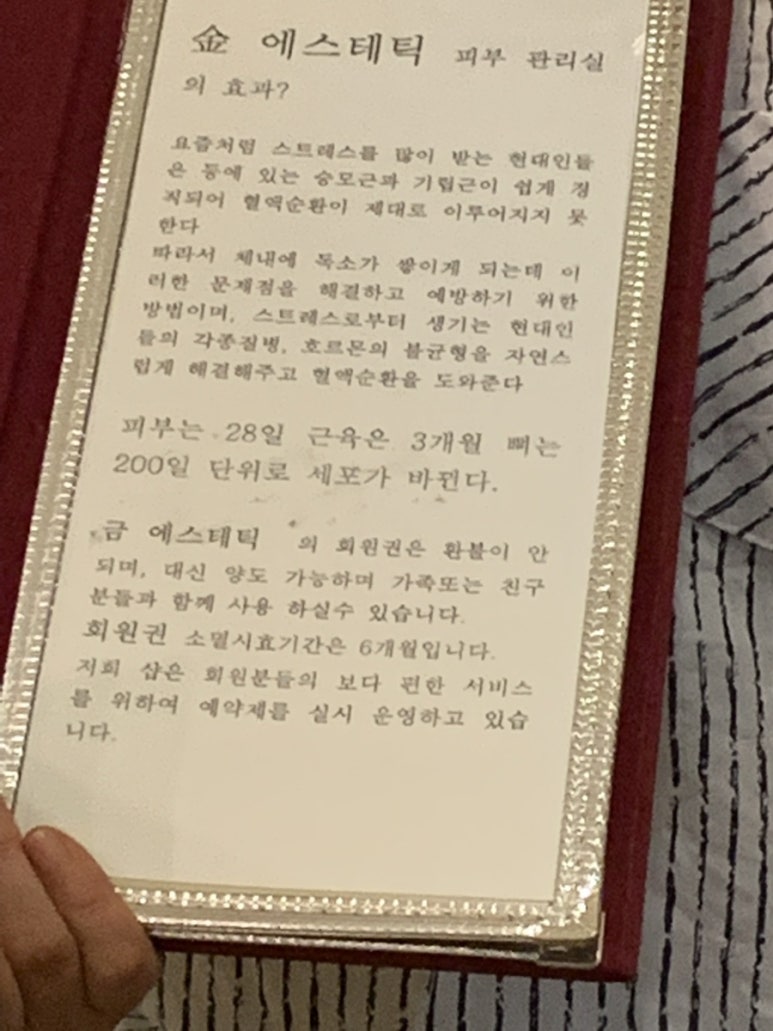 金 에스테틱 피부 관리실
의 효과?
요즘처럼 스트레스를 많이 받는 현대인들
은 등에 있는 승모근과 기립근이 쉽게 경
직되어 혈액순환이 제대로 이루어지지 못
한다
따라서 체내에 독소가 쌓이게 되는데 이
러한 문제점을 해결하고 예방하기 위한
방법이며, 스트레스로부터 생기는 현대인
들의 각종질병, 호르몬의 불균형을 자연스
럽게 해결해주고 혈액순환을 도와준다
피부는 28일 근육은 3개월 뼈는
200일 단위로 세포가 바뀐다.
금 에스테틱 의 회원권은 환불이 안
되며, 대신 양도 가능하며 가족또는 친구
분들과 함께 사용 하실수 있습니다.
회원권 소멸시효기간은 6개월입니다.
저희 샵은 회원분들의 보다 편한 서비스
를 위하여 예약제를 실시 운영하고 있습
니다.